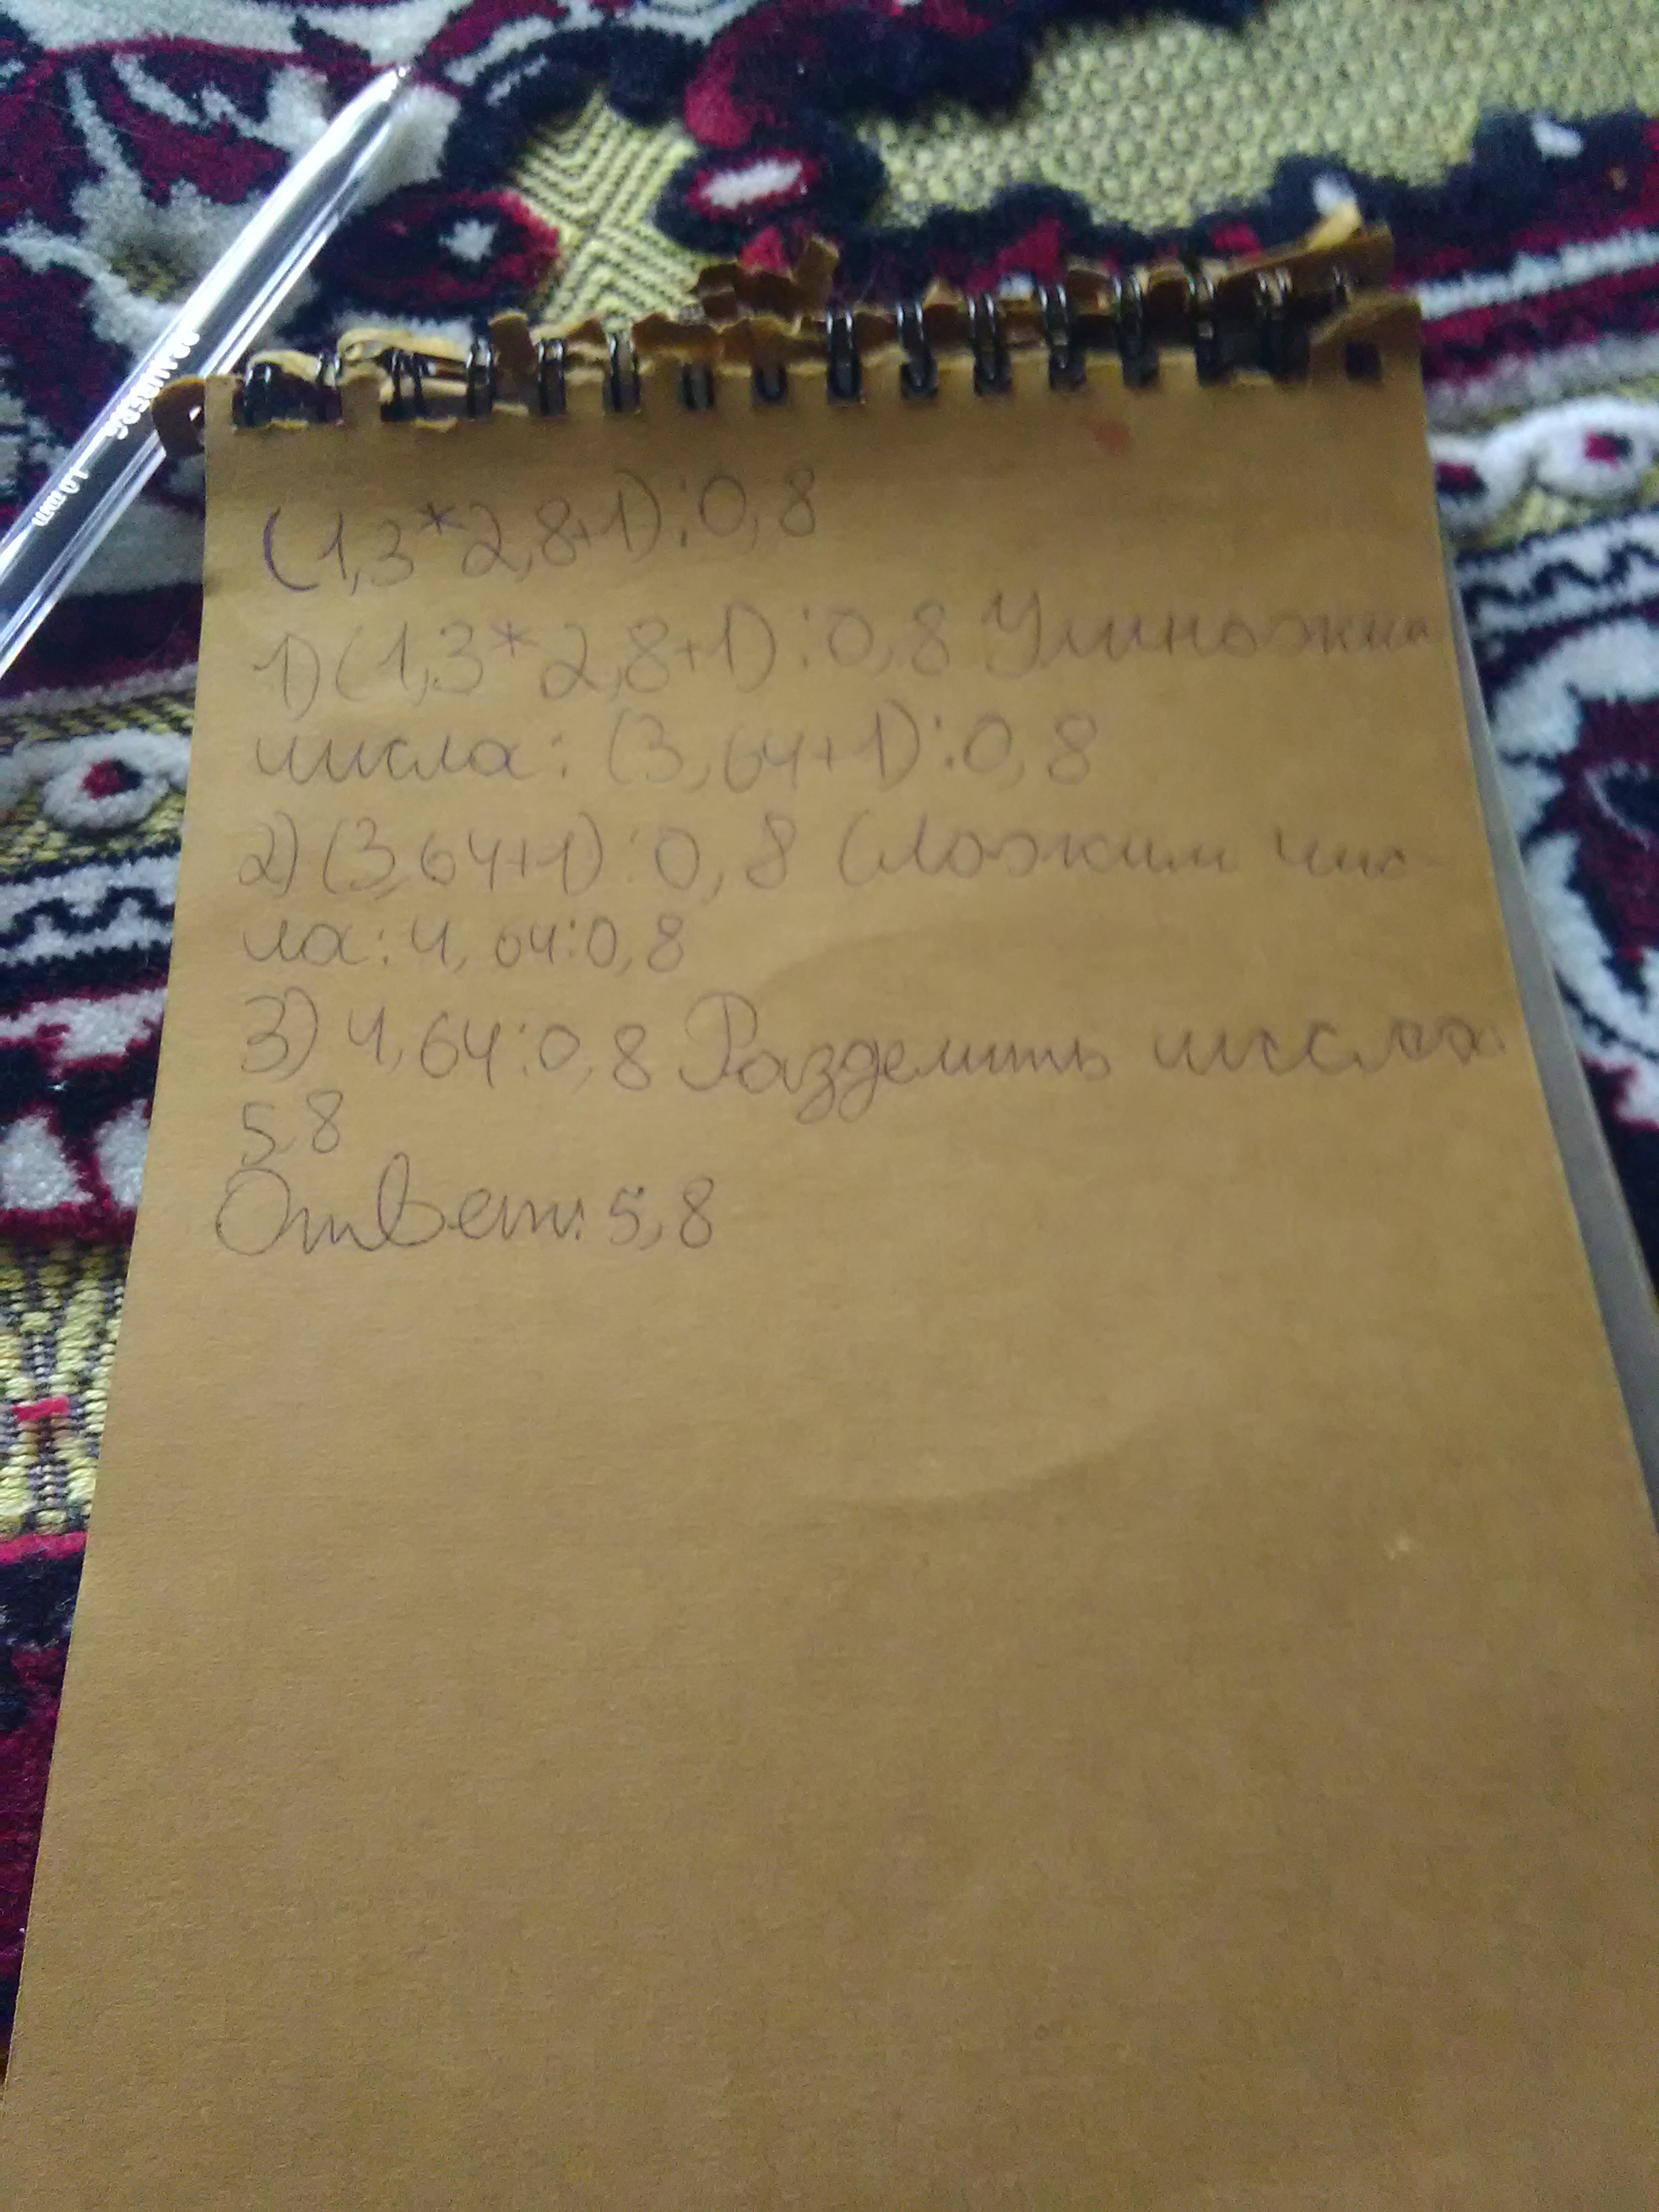 (1,3*2,8+1):0,8
1) (1,3*2,8+1):0,8 Умножив
числа: (3,64+1):0,8
2) (3,64+1):0,8 Сложим чис-
ла: 4,64:0,8
3) 4,64:0,8 Разделить числа
5,8
Ответ: 5,8
1.0 mm